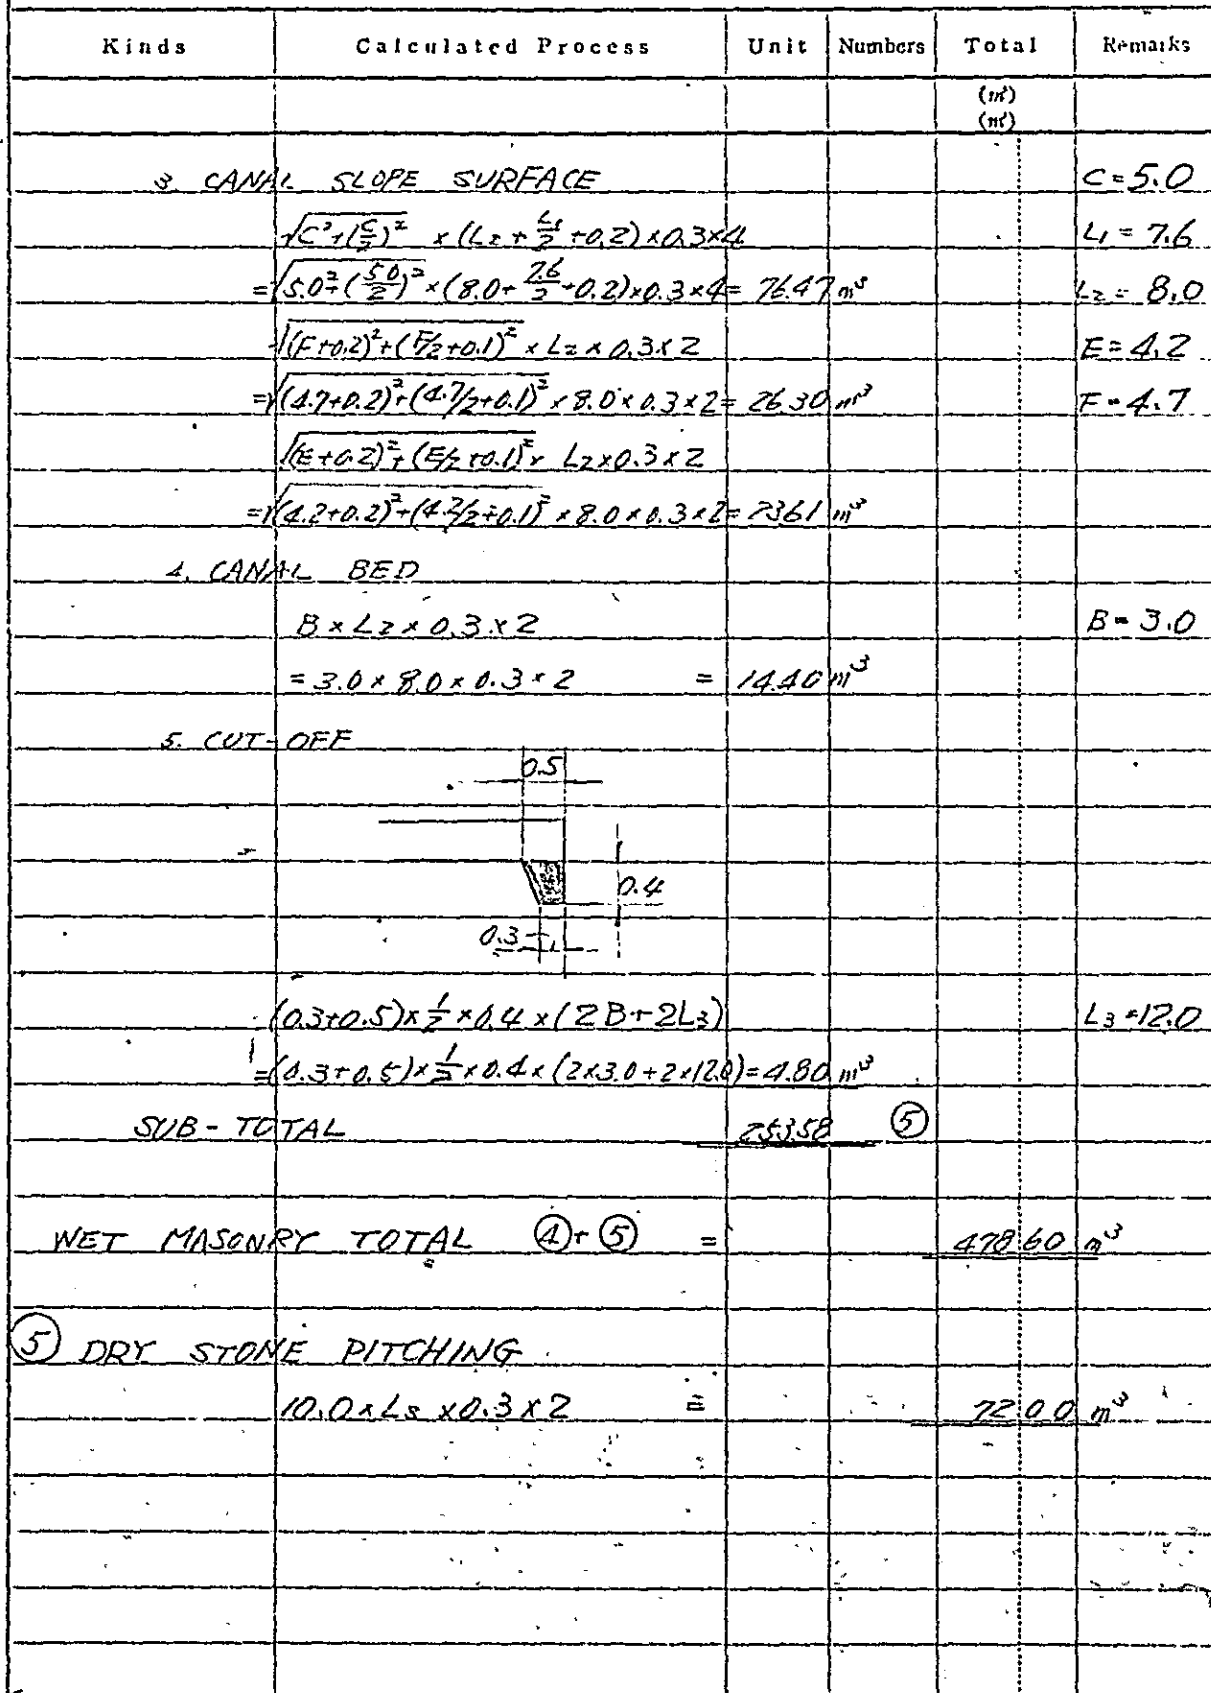 Kinds Calculated Process Unit Numbers Total Remarks
(m²)
(m³)
3. CANAL SLOPE SURFACE C=5.0
√C²+(C/2)² × (L2 + L1/2 +0.2)×0.3×4 L1 = 7.6
=√5.0²+(5.0/2)² ×(8.0+ 7.6/2 +0.2)×0.3×4= 76.47 m³ L2 = 8.0
√(F+0.2)²+(F/2+0.1)² × L2 × 0.3×2 E=4.2
=√(4.7+0.2)²+(4.7/2+0.1)² × 8.0×0.3×2= 26.30 m³ F=4.7
√(E+0.2)²+(E/2+0.1)² × L2×0.3×2
=√(4.2+0.2)²+(4.2/2+0.1)² × 8.0×0.3×2= 23.61 m³
4. CANAL BED
B × L2 × 0.3 × 2 B=3.0
= 3.0 × 8.0 × 0.3 × 2 = 14.40 m³
5. CUT-OFF
0.5
0.4
0.3
(0.3+0.5)×1/2×0.4×(2B+2L3) L3=12.0
=(0.3+0.5)×1/2×0.4×(2×3.0+2×12.0)=4.80 m³
SUB-TOTAL 253.58 ⑤
WET MASONRY TOTAL ④+⑤ = 478.60 m³
⑤ DRY STONE PITCHING
10.0×L3×0.3×2 = 72.00 m³